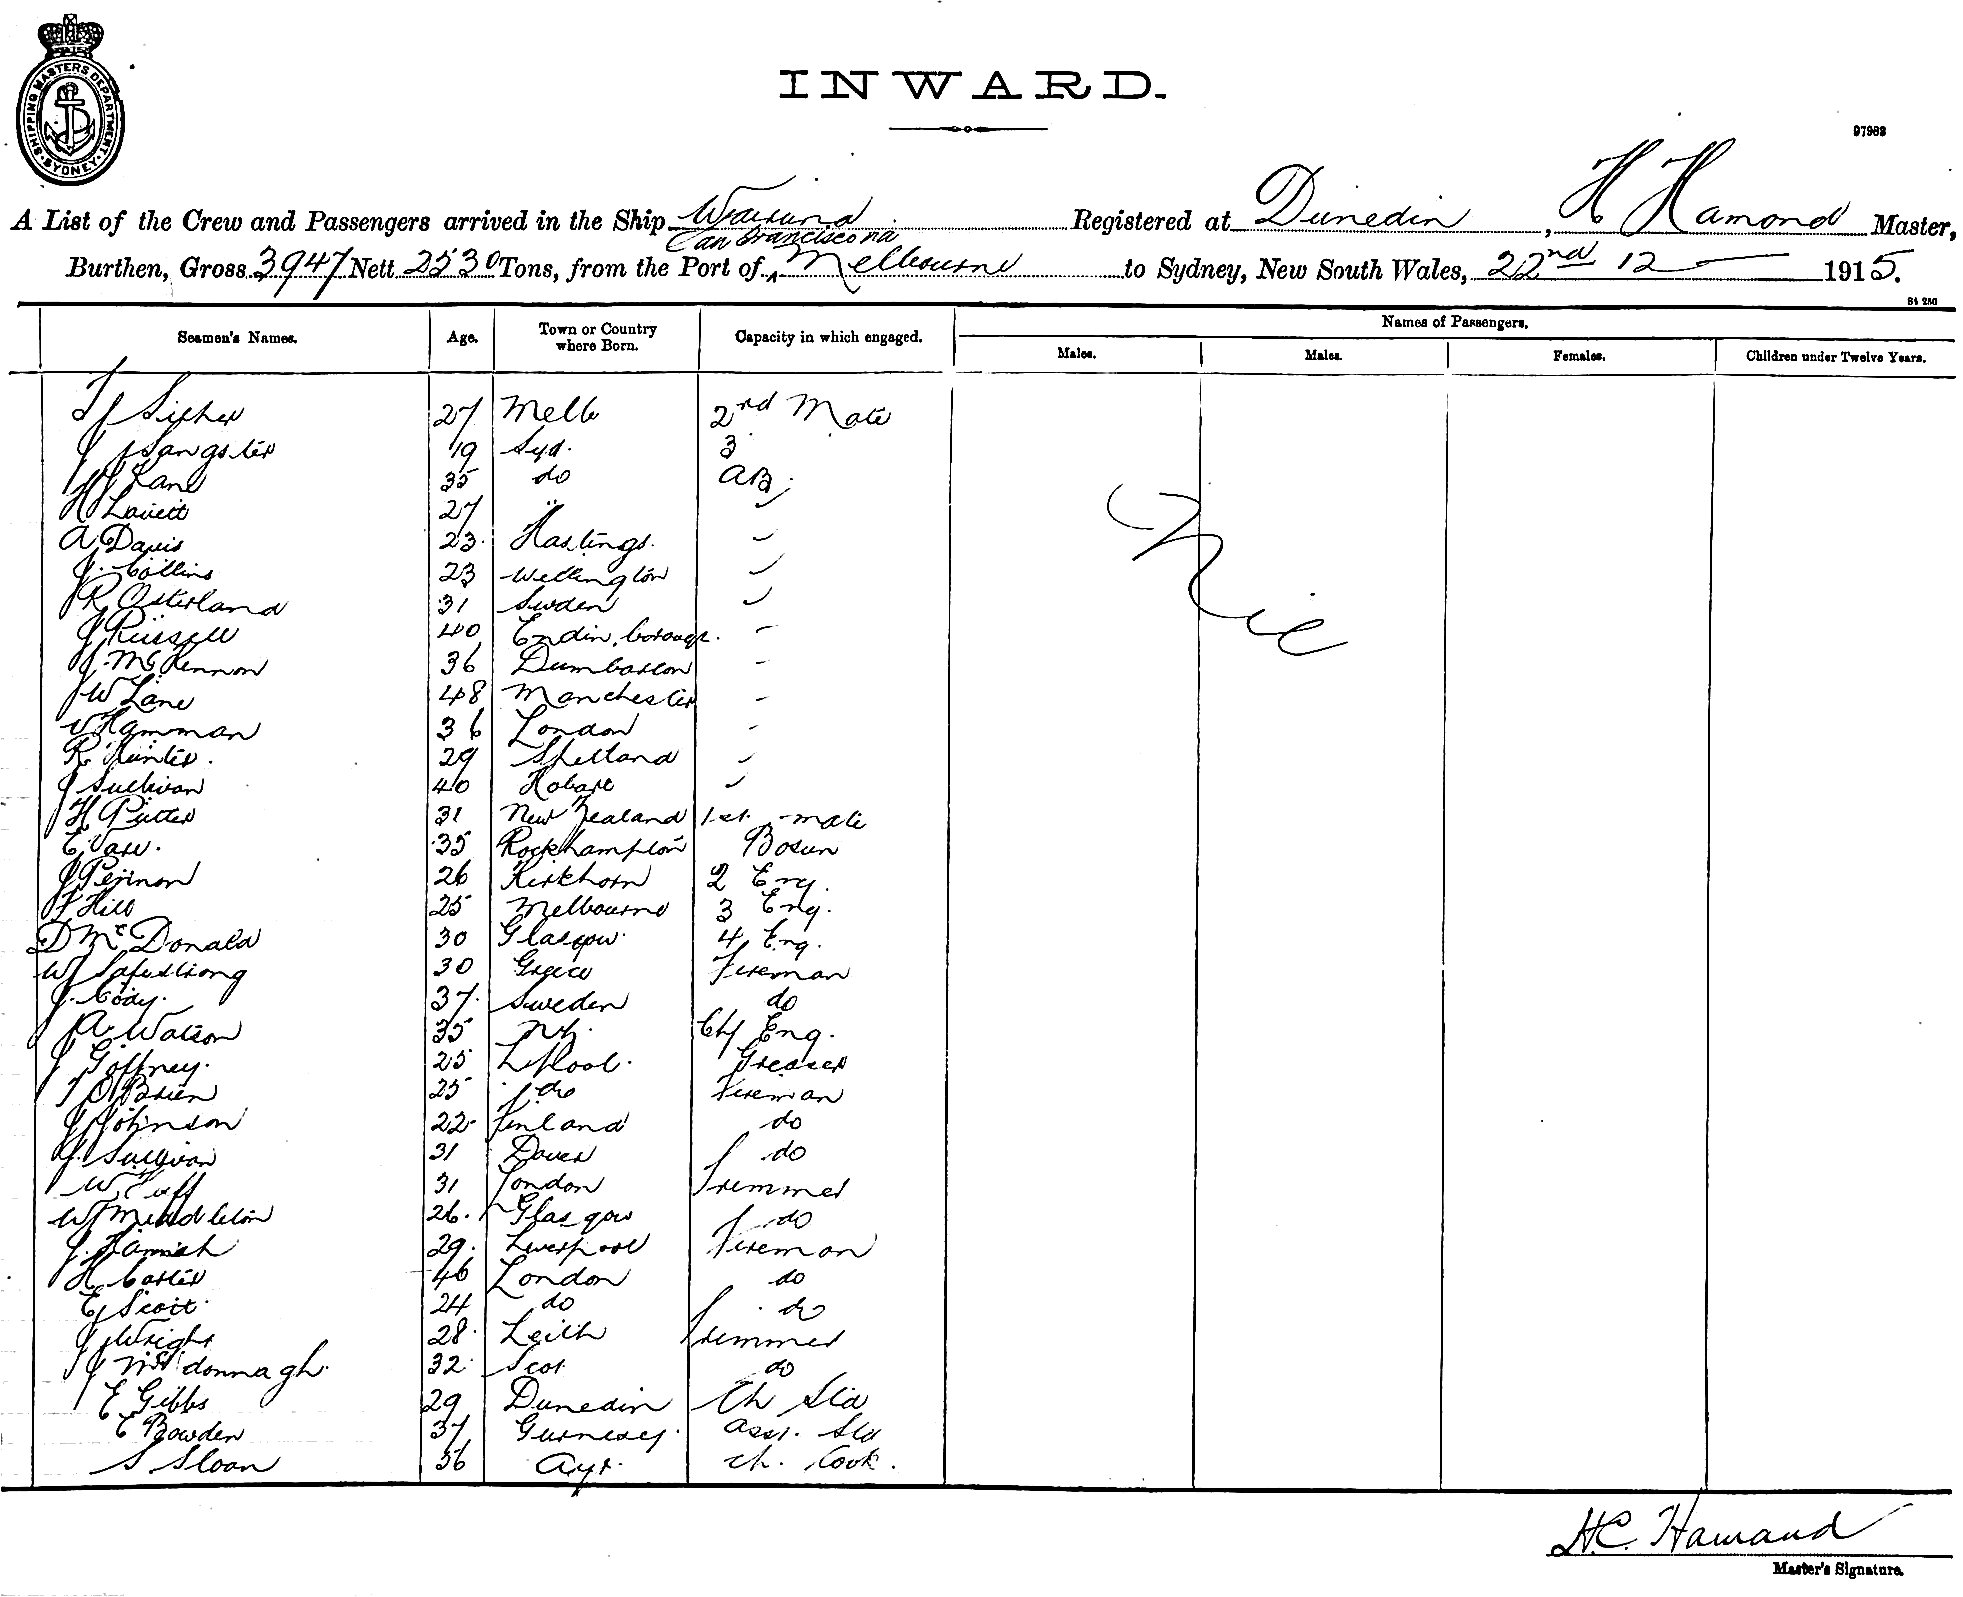 SHIPPING MASTERS DEPARTMENT. SYDNEY.
INWARD.
97983
A List of the Crew and Passengers arrived in the Ship Wairuna Registered at Dunedin, H Hamond Master,
San Francisco via
Burthen, Gross 3947 Nett 2530 Tons, from the Port of Melbourne to Sydney, New South Wales, 22nd 12 1915.
Seamen's Names. Age. Town or Country where Born. Capacity in which engaged. Names of Passengers.
Males. Males. Females. Children under Twelve Years.
27 Melb 2nd Mate
J Sangster 19 Syd. 3
Lane 35 do AB.
H Lovett 27 "
A Davis 23 Hastings.
J. Collins 23 Wellington
R Osterland 31 Sweden
J Russell 40
J. McKennon 36 Dumbarton
W Lane 48 Manchester
W Hamman 36 London
R Hunter. 29 Shetland
J Sullivan 40 Hobart
H Putter 31 New Zealand 1st mate
E 35 Rockhampton Bosun
J 26 2 Eng.
J Hill 25 Melbourne 3 Eng.
D McDonald 30 Glasgow. 4 Eng.
W 30 Greece Fireman
J. Cody. 37. Sweden do
A Watson 35 NZ. Chf Eng.
J Goffney. 25 L'Pool. Greaser
T O'Brien 25 do Fireman
J Johnson 22. Finland do
J. Sullivan 31 Dover do
W Cuff 31 London Trimmer
W Middleton 26. Glasgow do
J. 29. Liverpool Fireman
H Carter 46 London do
E Scott. 24 do do
J Wright 28. Leith Trimmer
J McDonnagh. 32. Scot do
E Gibbs 29 Dunedin Ch Std
E Bowden 37 Gurnesey. Asst. Std
S Sloan 56 Ayr. Ch. Cook.
Nil
H.C. Hamond
Master's Signature.